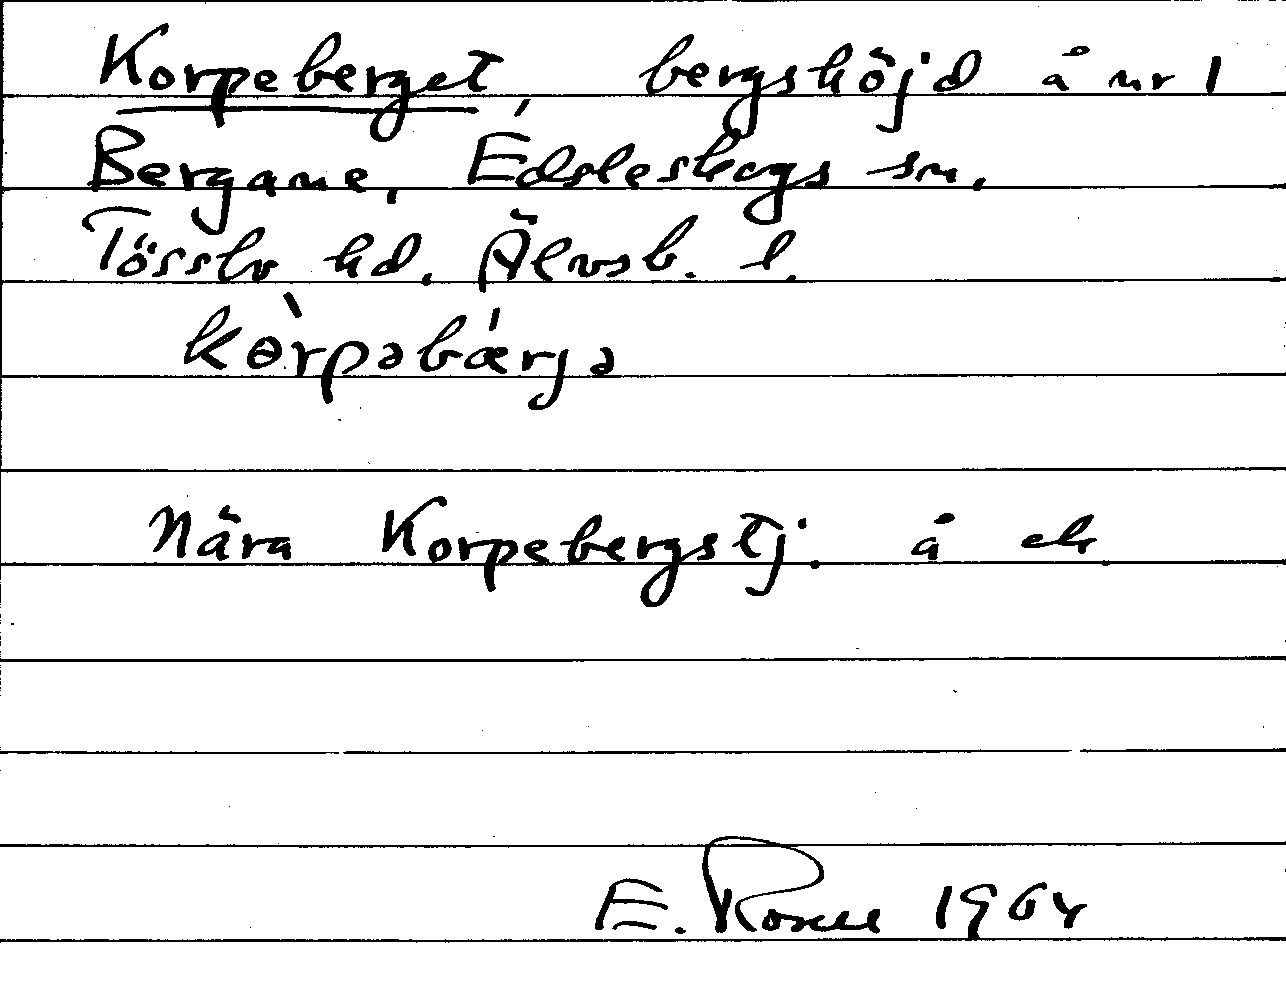 Korpeberget, bergshöjd å nr 1
Bergane, Edsleskogs sn.
Tössbo hd. Älvsb. l.
kɵ̀rpəbǽrjə
Nära Korpebergstj. å ek.
E. Rosell 1964